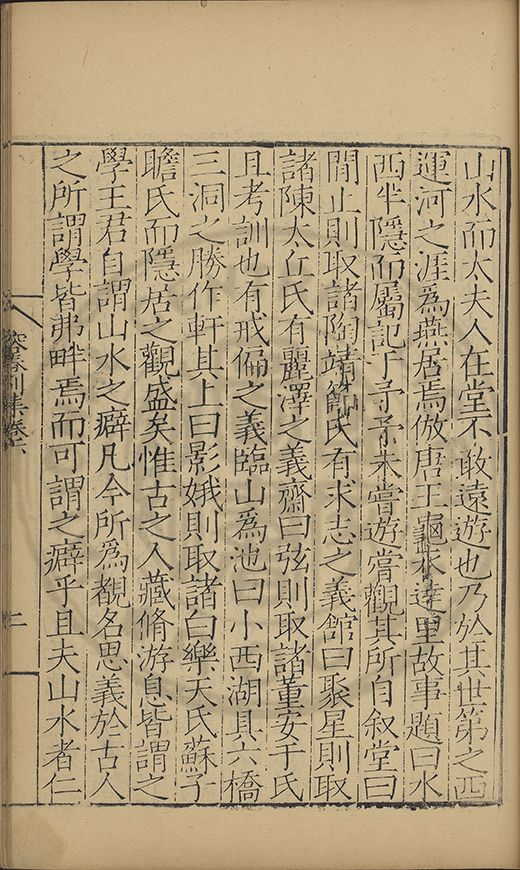 山水而太夫人在堂不敢遠遊也乃於其世第之西
運河之涯為燕居焉倣唐王龜永達里故事題曰水
西半隱而屬記于予予未嘗遊嘗觀其所自叙堂曰
閒止則取諸陶靖節氏有求志之義館曰聚星則取
諸陳太丘氏有麗澤之義齋曰弦則取諸董安于氏
且考訓也有戒偏之義臨山為池曰小西湖具六橋
三洞之勝作軒其上曰影娥則取諸白樂天氏蘇子
瞻氏而隱居之觀盛矣惟古之人藏脩游息皆謂之
學王君自謂山水之癖凡今所為覩名思義於古人
之所謂學皆弗畔焉而可謂之癖乎且夫山水者仁
集卷六
二